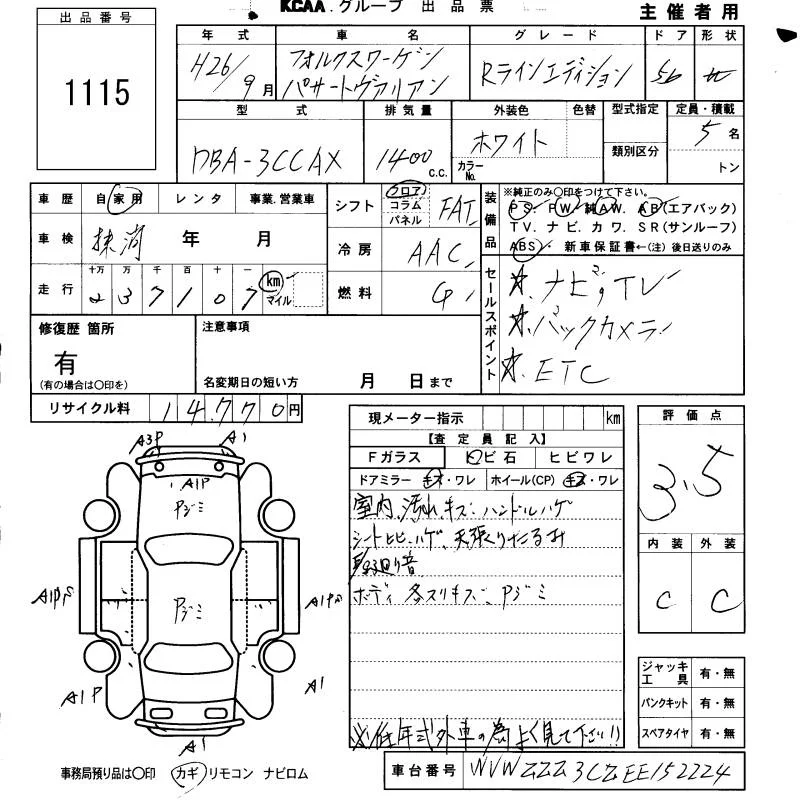 KCAA.グループ 出品票
主催者用
出品番号
1115
年式 車名 グレード ドア 形状
H26/9月 フォルクスワーゲン パサートヴァリアント Rラインエディション 5D
型式 排気量 外装色 色替 型式指定 定員・積載
DBA-3CCAX 1400 c.c. ホワイト カラーNo. 類別区分 5名 トン
車歴 自家用 レンタ 事業.営業車
シフト フロア コラム パネル FAT
装備品 ※純正のみ○印をつけて下さい。
PS. PW. 純AW. AB(エアバック)
TV. ナビ. カワ. SR(サンルーフ)
ABS. 新車保証書←(注)後日送りのみ
車検 抹消 年 月
冷房 AAC
走行 十万 万 千 百 十 一
237107 km マイル
燃料 G
セールスポイント
☆.ナビ,TV
☆.バックカメラ
☆.ETC
修復歴 箇所
有
(有の場合は○印を)
注意事項
名変期日の短い方 月 日まで
リサイクル料 14,770円
現メーター指示 km
【査定員記入】
Fガラス トビ石 ヒビワレ
ドアミラー キズ・ワレ ホイール(CP) キズ・ワレ
室内 汚れ.キズ. ハンドルハゲ
シートヒビ.ハゲ. 天張りたるみ
廻り音
ボディ 各スリキズ. Pジミ
※低年式外車の為よく見て下さい!!
評価点
3.5
内装 外装
C C
ジャッキ工具 有・無
パンクキット 有・無
スペアタイヤ 有・無
A3P A1
A1P
Pジミ
Pジミ
A1P
A1
A1
事務局預り品は○印 カギ リモコン ナビロム
車台番号 WVWZZZ3CZEE152224